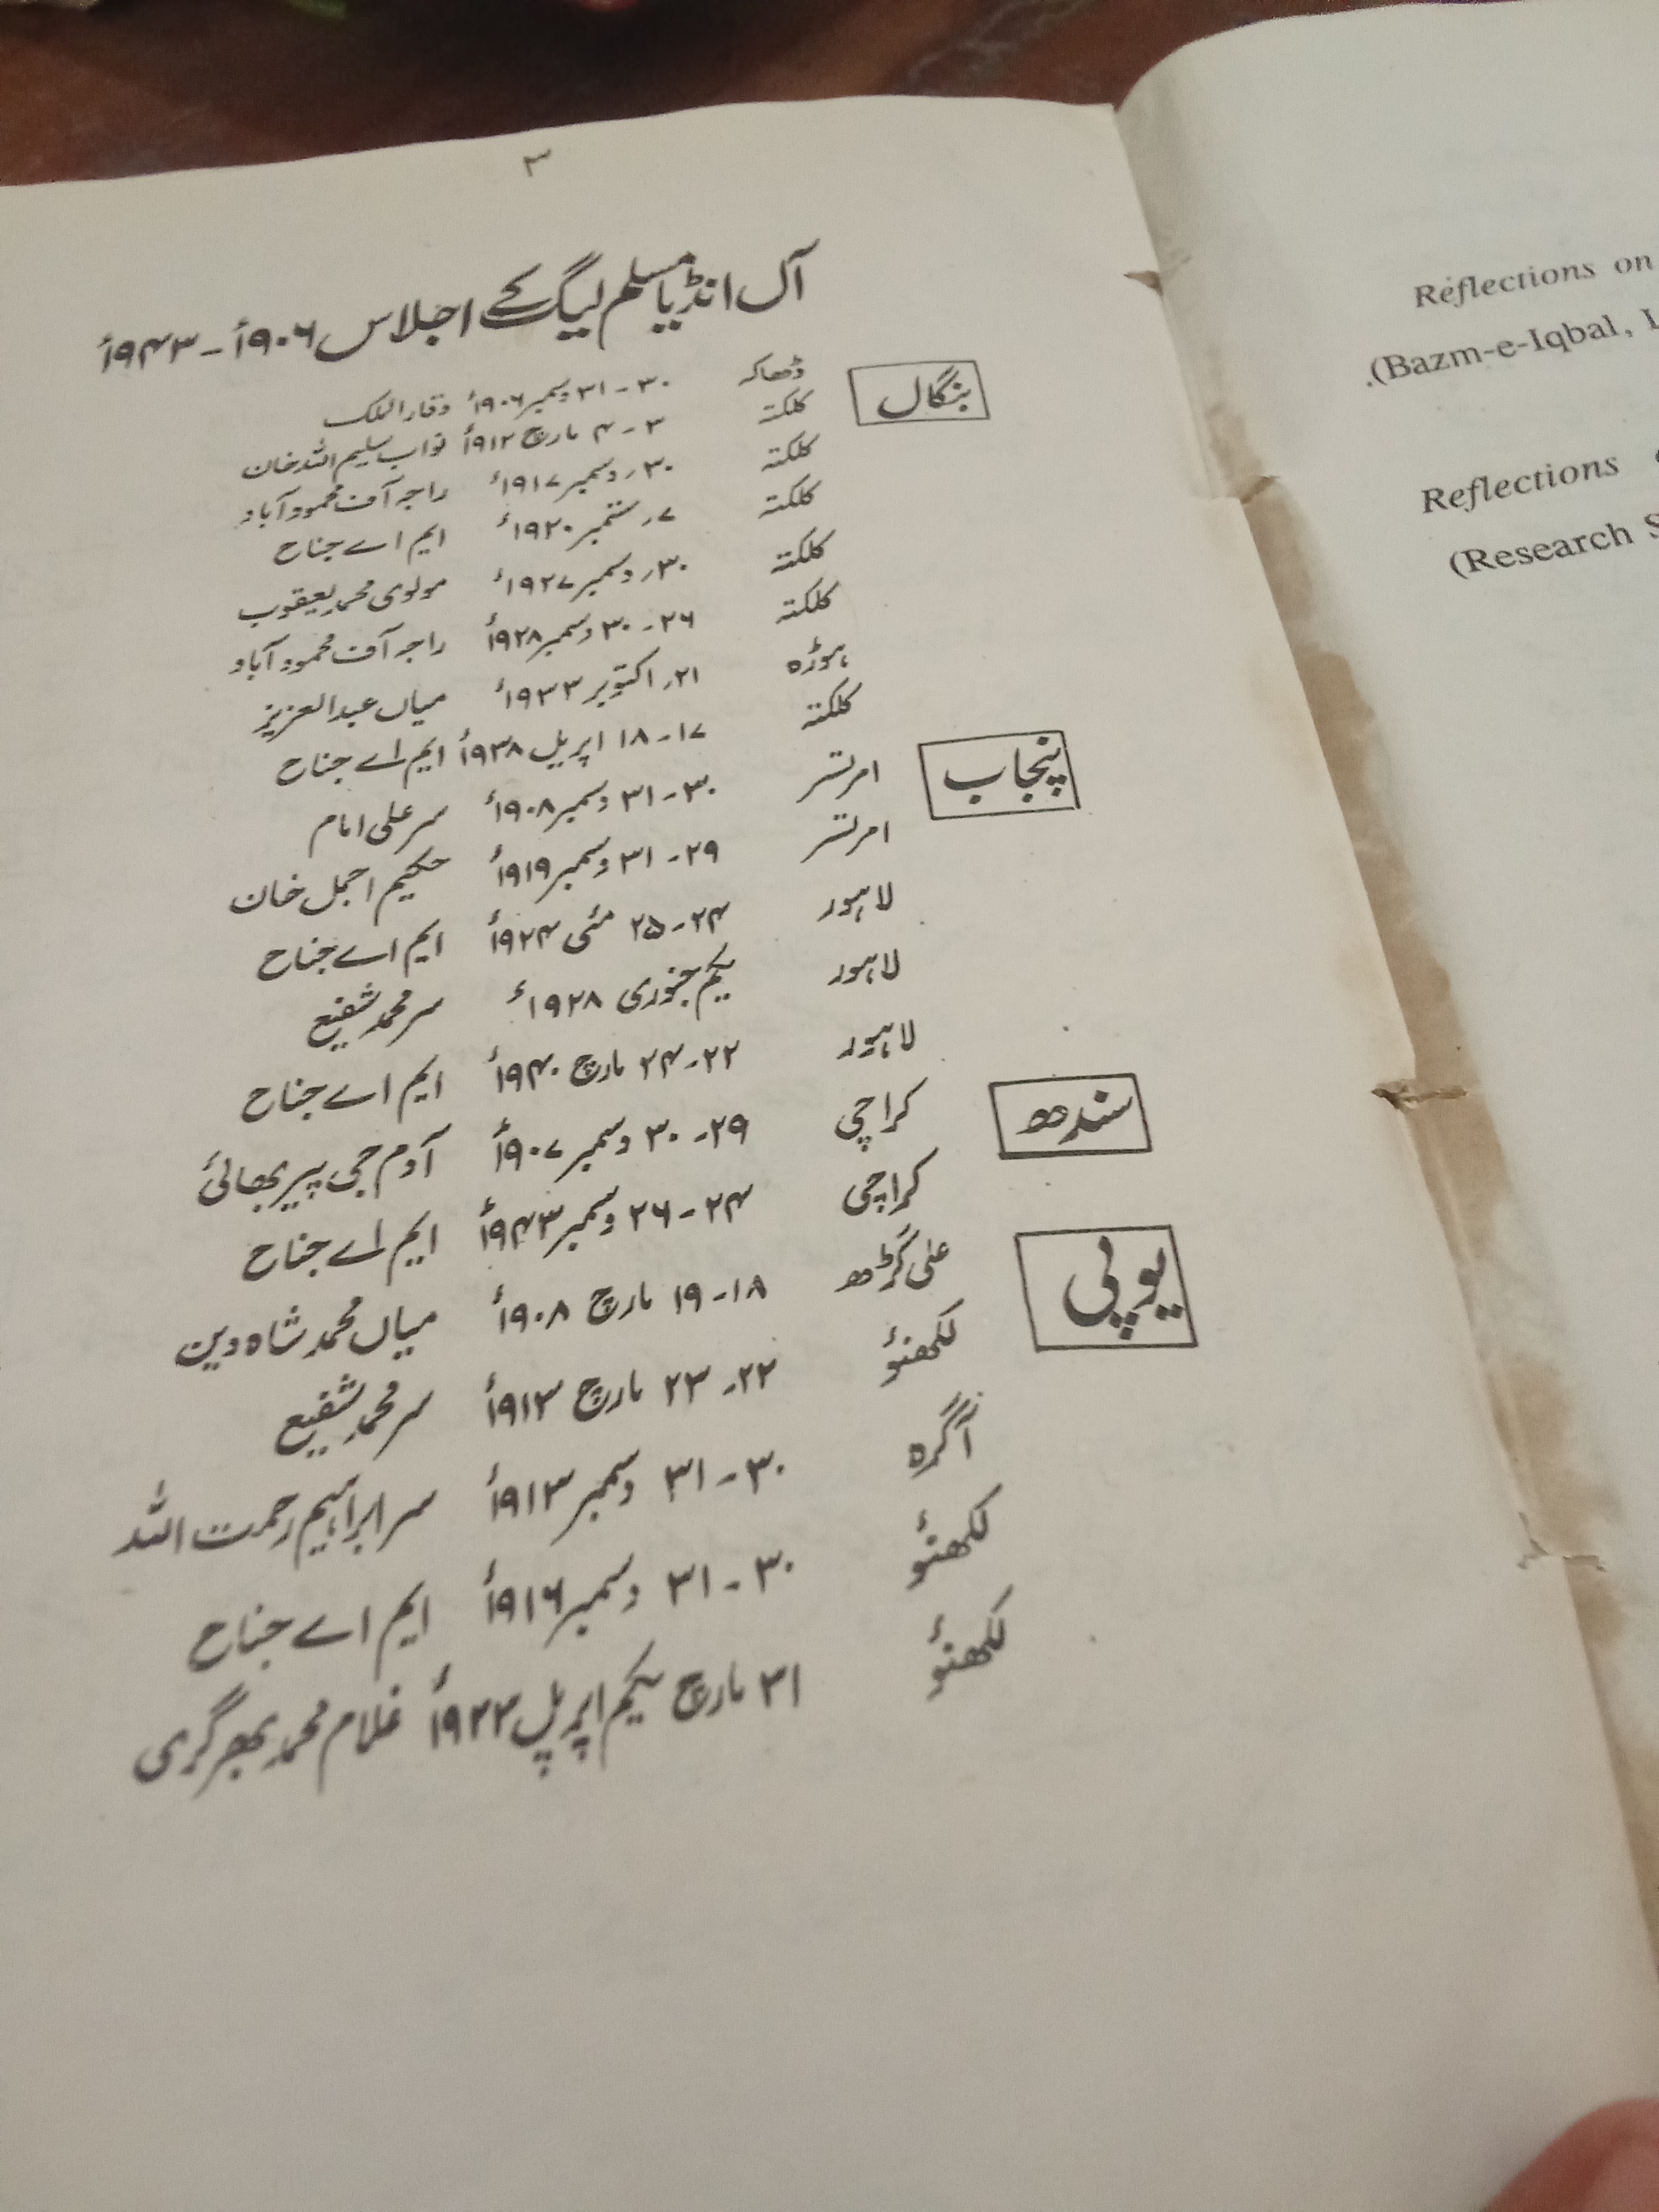 ۳
آل انڈیا مسلم لیگ کے اجلاس ۱۹۰۶ء - ۱۹۴۳ء
بنگال ڈھاکہ ۳۰ - ۳۱ دسمبر ۱۹۰۶ء وقار الملک
کلکتہ ۳ - ۴ مارچ ۱۹۱۲ء نواب سلیم اللہ خان
کلکتہ ۳۰؍ دسمبر ۱۹۱۷ء راجہ آف محمود آباد
کلکتہ ۷؍ ستمبر ۱۹۲۰ء ایم اے جناح
کلکتہ ۳۰؍ دسمبر ۱۹۲۷ء مولوی محمد یعقوب
کلکتہ ۲۶ - ۳۰ دسمبر ۱۹۲۸ء راجہ آف محمود آباد
ہوڑہ ۲۱؍ اکتوبر ۱۹۳۳ء میاں عبدالعزیز
کلکتہ ۱۷ - ۱۸ اپریل ۱۹۳۸ء ایم اے جناح
پنجاب امرتسر ۳۰ - ۳۱ دسمبر ۱۹۰۸ء سر علی امام
امرتسر ۲۹ - ۳۱ دسمبر ۱۹۱۹ء حکیم اجمل خان
لاہور ۲۴ - ۲۵ مئی ۱۹۲۴ء ایم اے جناح
لاہور یکم جنوری ۱۹۲۸ء سر محمد شفیع
لاہور ۲۲ - ۲۴ مارچ ۱۹۴۰ء ایم اے جناح
سندھ کراچی ۲۹ - ۳۰ دسمبر ۱۹۰۷ء آدم جی پیر بھائی
کراچی ۲۴ - ۲۶ دسمبر ۱۹۴۳ء ایم اے جناح
یو پی علی گڑھ ۱۸ - ۱۹ مارچ ۱۹۰۸ء میاں محمد شاہ دین
لکھنؤ ۲۲ - ۲۳ مارچ ۱۹۱۳ء سر محمد شفیع
آگرہ ۳۰ - ۳۱ دسمبر ۱۹۱۳ء سر ابراہیم رحمت اللہ
لکھنؤ ۳۰ - ۳۱ دسمبر ۱۹۱۶ء ایم اے جناح
لکھنؤ ۳۱ مارچ یکم اپریل ۱۹۲۳ء غلام محمد بھرگری
Reflections on
(Bazm-e-Iqbal,
Reflections
(Research